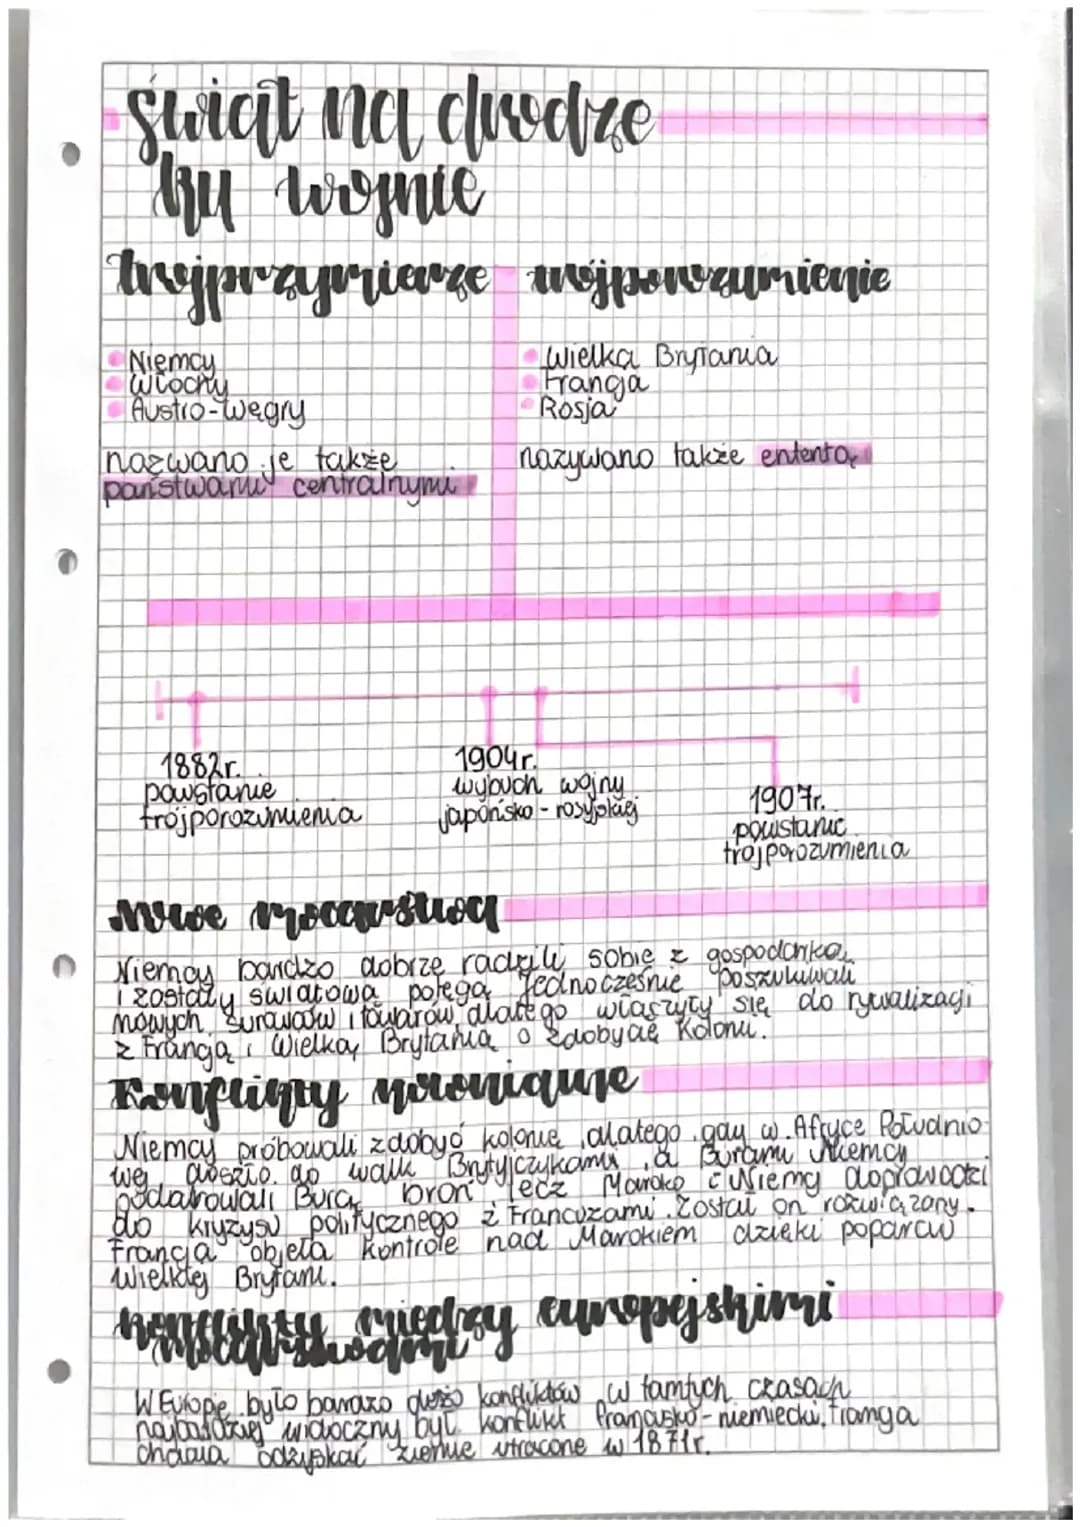 świat na drodze
ku wojnie
trójprzymierze
trójporozumienie
Niemcy
Włochy
Austro-Węgry
nazwano je także
państwami centralnymi
Wielka Brytania
Francja
Rosja
nazywano także ententą
1882r.
powstanie
trójporozumienia
1904r.
wybuch wojny
japońsko-rosyjskiej
1907r.
powstanie
trójporozumienia
Nowe mocarstwa
Niemcy bardzo dobrze radzili sobie z gospodarką
i zostały światową potęgą Jednocześnie poszukiwali
nowych surowców i towarów, dlatego włączyły się do rywalizacji
z Francją i Wielką Brytanią o zdobycie kolonii.
Konflikty kolonialne
Niemcy próbowali zdobyć kolonie, dlatego gdy w Afryce Południo-
wej doszło do walk Brytyjczykami, a Burami Niemcy
podarowali Burą broń, lecz Maroko i Niemcy doprowadzili
do kryzysu politycznego z Francuzami. Został on rozwiązany.
Francja objęła kontrolę nad Marokiem dzięki poparciu
Wielkiej Brytanii.
konflikty między europejskimi
mocarstwami
W Europie było bardzo dużo konfliktów w tamtych czasach
najbardziej widoczny był konflikt francusko-niemiecki, Francja
chciała odzyskać ziemie utracone w 1871r.